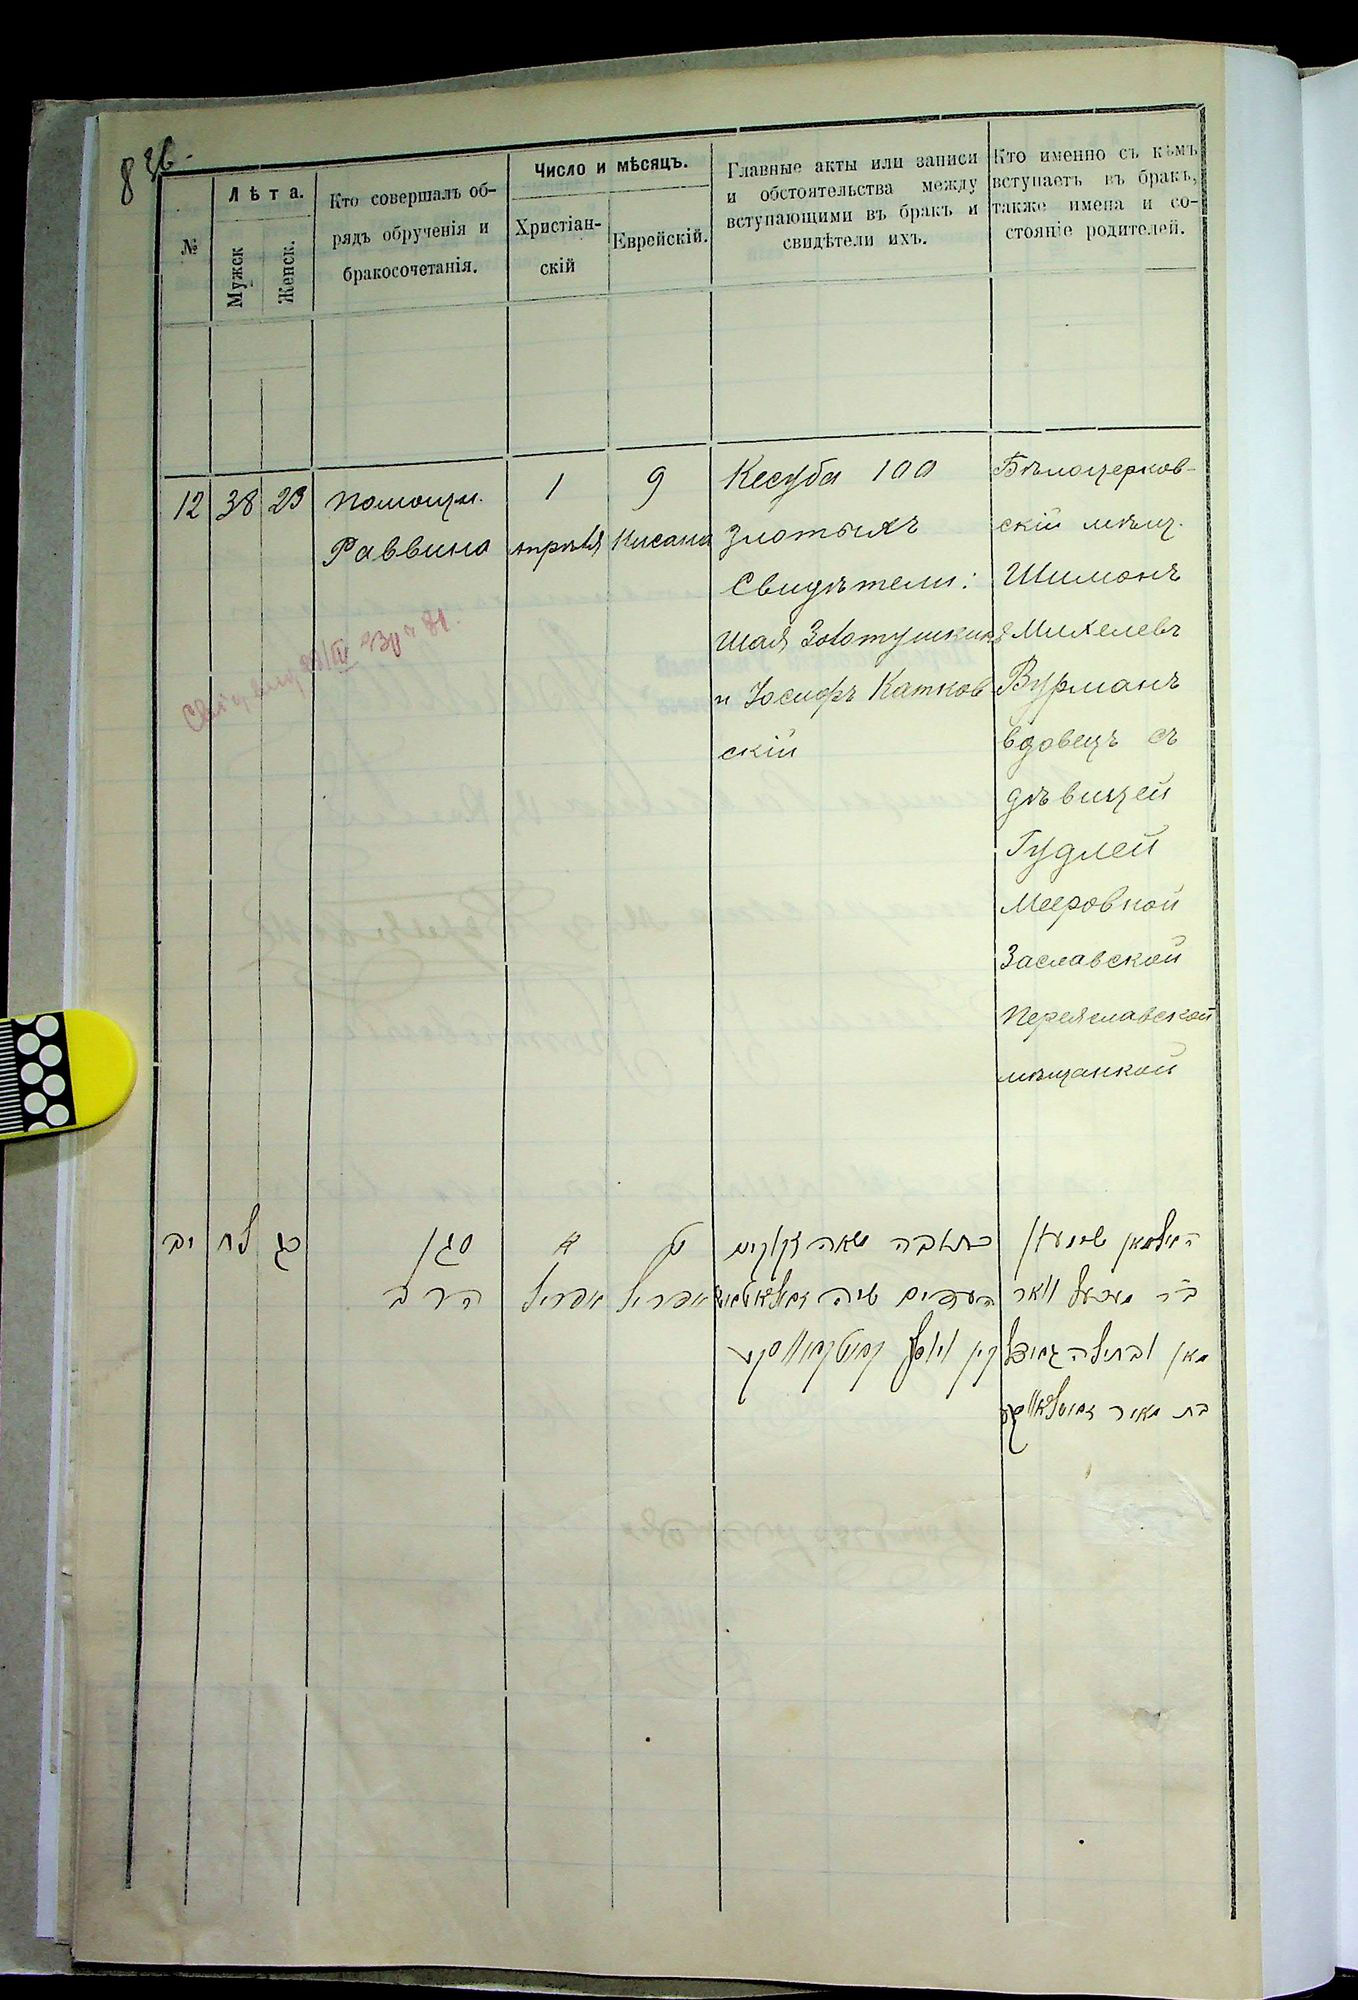 8 зв.
№
Лѣта.
Мужск
Женск.
Кто совершалъ об-
рядъ обрученія и
бракосочетанія.
Число и мѣсяцъ.
Христіан-
скій
Еврейскій.
Главные акты или записи
и обстоятельства между
вступающими въ бракъ и
свидѣтели ихъ.
Кто именно съ кѣмъ
вступаетъ въ бракъ,
также имена и со-
стояніе родителей.
12
38
23
Помощн.
Раввина
1
апрѣля
9
Нисана
Кесуба 100
злотыхъ
Свидѣтели:
Шая Золотушкинъ
и Іосифъ Катков
скій
Бѣлоцерков-
скій мѣщ.
Шимонъ
Михелевъ
Вурманъ
вдовецъ съ
дѣвицей
Гудлей
Мееровной
Заславской
Переяславской
мѣщанкой
יב
לח
כג
סגן
הרב
א
אפריל
ט
אפריל
כתובה מאה זקוקים
העדים שיה
קין ויוסף
האלמאן שימעון
ב״ר מיכעל וואר
מאן ובתולה גודל
בת מאיר